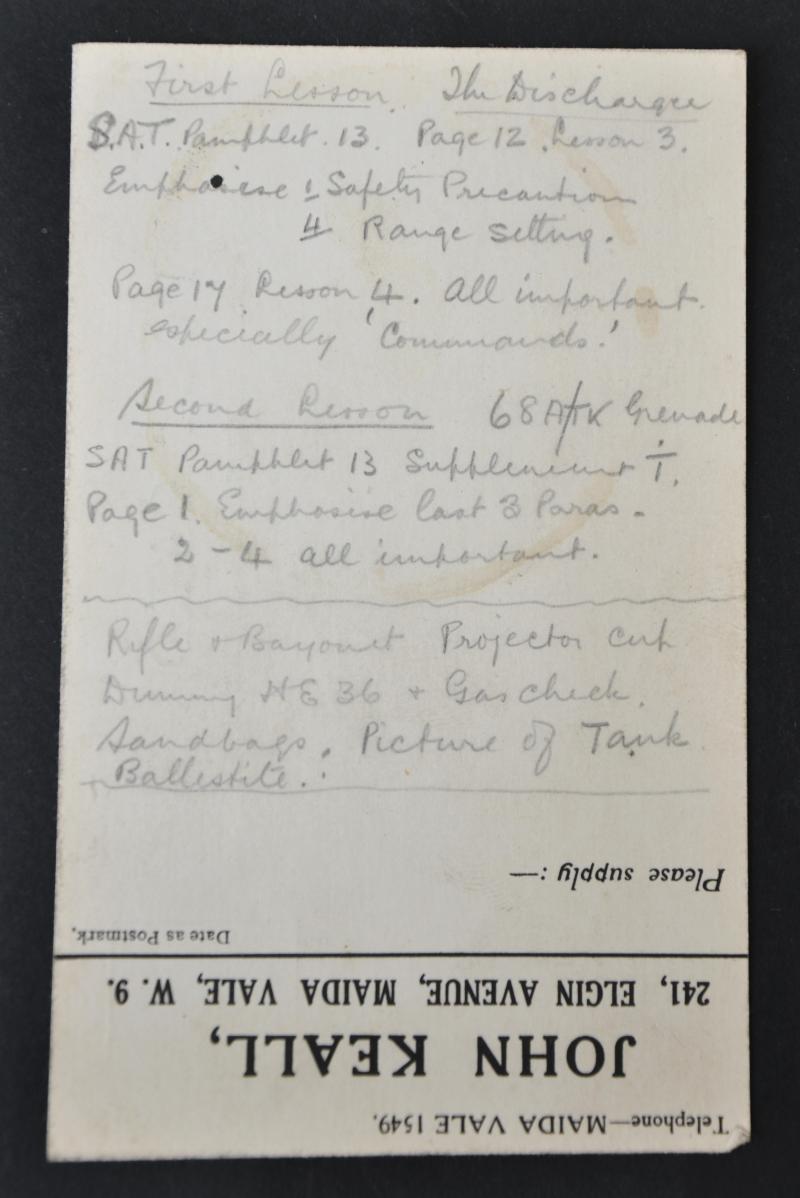 First Lesson. The Discharger
S.A.T. Pamphlet. 13. Page 12. Lesson 3.
Emphasise 1 Safety Precaution
4 Range Setting.
Page 17 Lesson 4. All important.
especially 'Commands.'
Second Lesson 68 A/TK Grenade
SAT Pamphlet 13 Supplement T.
Page 1. Emphasise last 3 Paras.
2-4 all important.
Rifle & Bayonet Projector Cup
Dummy HE 36 + Gascheck.
Sandbags. Picture of Tank
Ballestite.
Please supply:—
Date as Postmark,
241, ELGIN AVENUE, MAIDA VALE, W. 9.
JOHN KEALL,
Telephone—MAIDA VALE 1549.